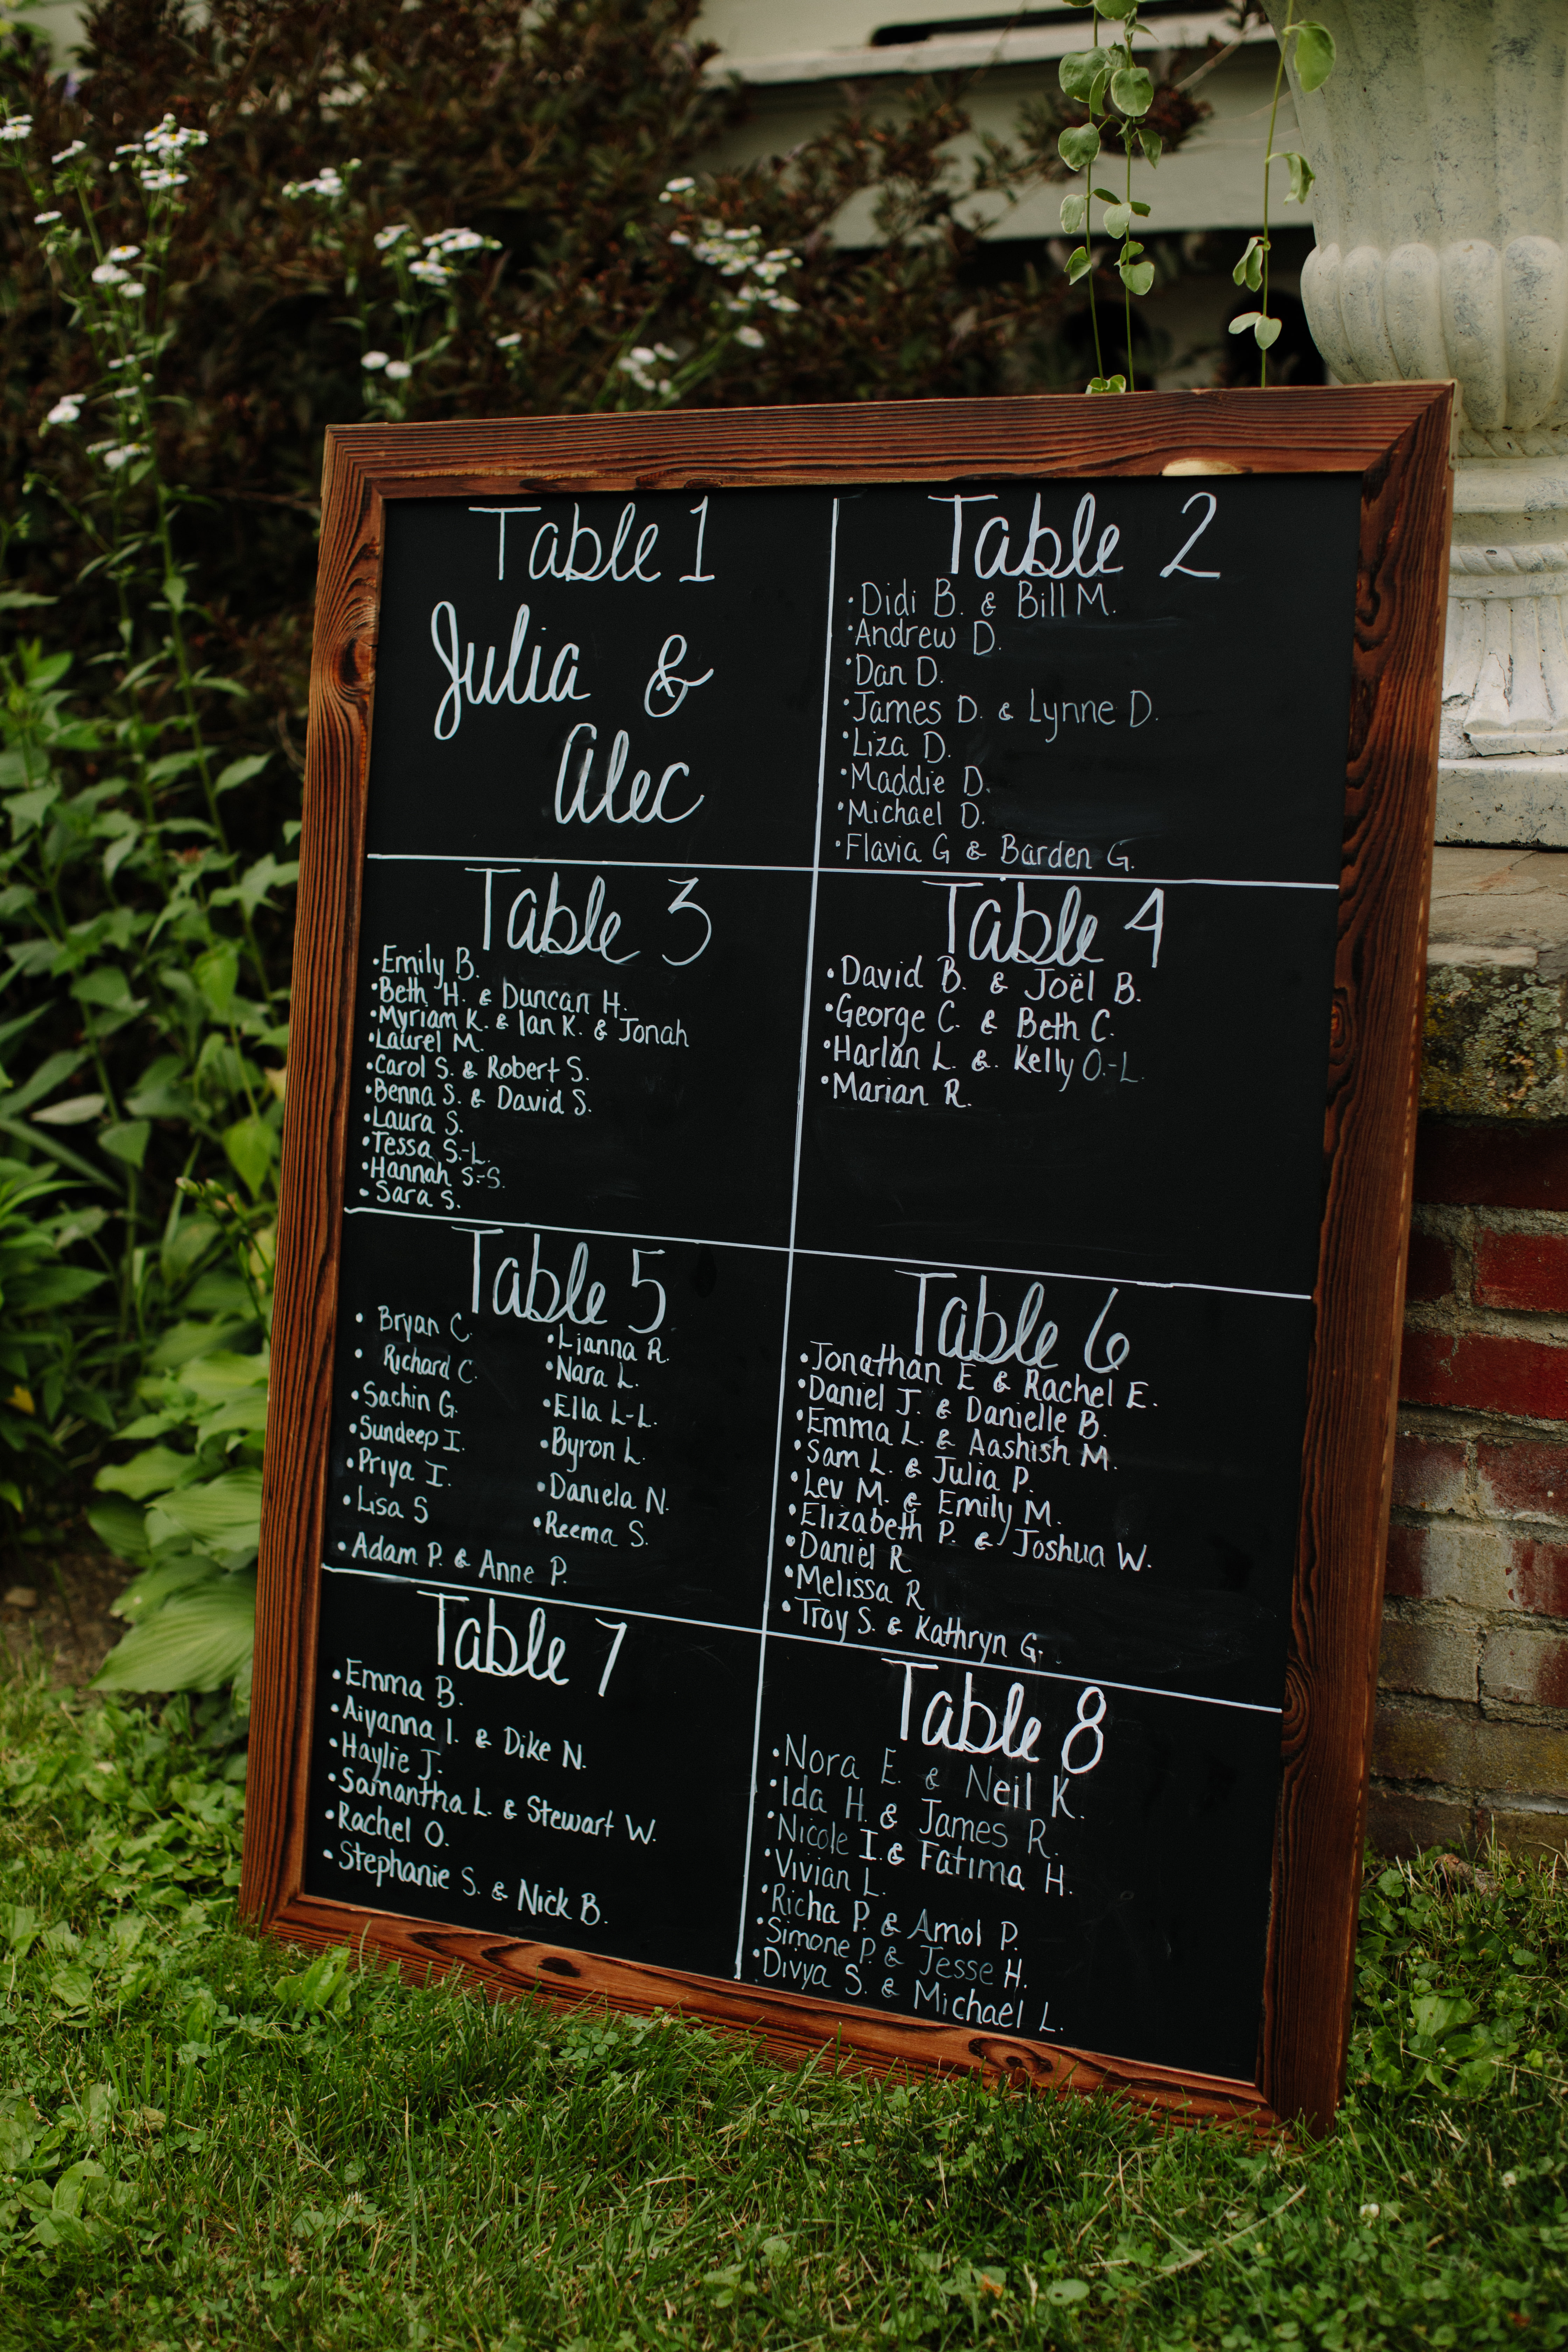 Table 1
Julia &
Alec
Table 2
·Didi B. & Bill M.
·Andrew D.
·Dan D.
·James D. & Lynne D.
·Liza D.
·Maddie D.
·Michael D.
·Flavia G & Barden G.
Table 3
·Emily B.
·Beth H. & Duncan H.
·Myriam K. & Ian K. & Jonah
·Laurel M.
·Carol S. & Robert S.
·Benna S. & David S.
·Laura S.
·Tessa S.-L.
·Hannah S.-S.
·Sara S.
Table 4
·David B. & Joël B.
·George C. & Beth C.
·Harlan L. &. Kelly O.-L.
·Marian R.
Table 5
· Bryan C.
· Richard C.
·Sachin G.
·Sundeep I.
·Priya I.
·Lisa S
·Lianna R.
·Nara L.
·Ella L-L.
·Byron L.
·Daniela N.
·Reema S.
·Adam P. & Anne P.
Table 6
·Jonathan E & Rachel E.
·Daniel J. & Danielle B.
·Emma L. & Aashish M.
·Sam L. & Julia P.
·Lev M. & Emily M.
·Elizabeth P. & Joshua W.
·Daniel R
·Melissa R
·Troy S. & Kathryn G.
Table 7
·Emma B.
·Aiyanna I. & Dike N.
·Haylie J.
·Samantha L. & Stewart W.
·Rachel O.
·Stephanie S. & Nick B.
Table 8
·Nora E. & Neil K.
·Ida H. & James R.
·Nicole I. & Fatima H.
·Vivian L.
·Richa P. & Amol P.
·Simone P. & Jesse H.
·Divya S. & Michael L.